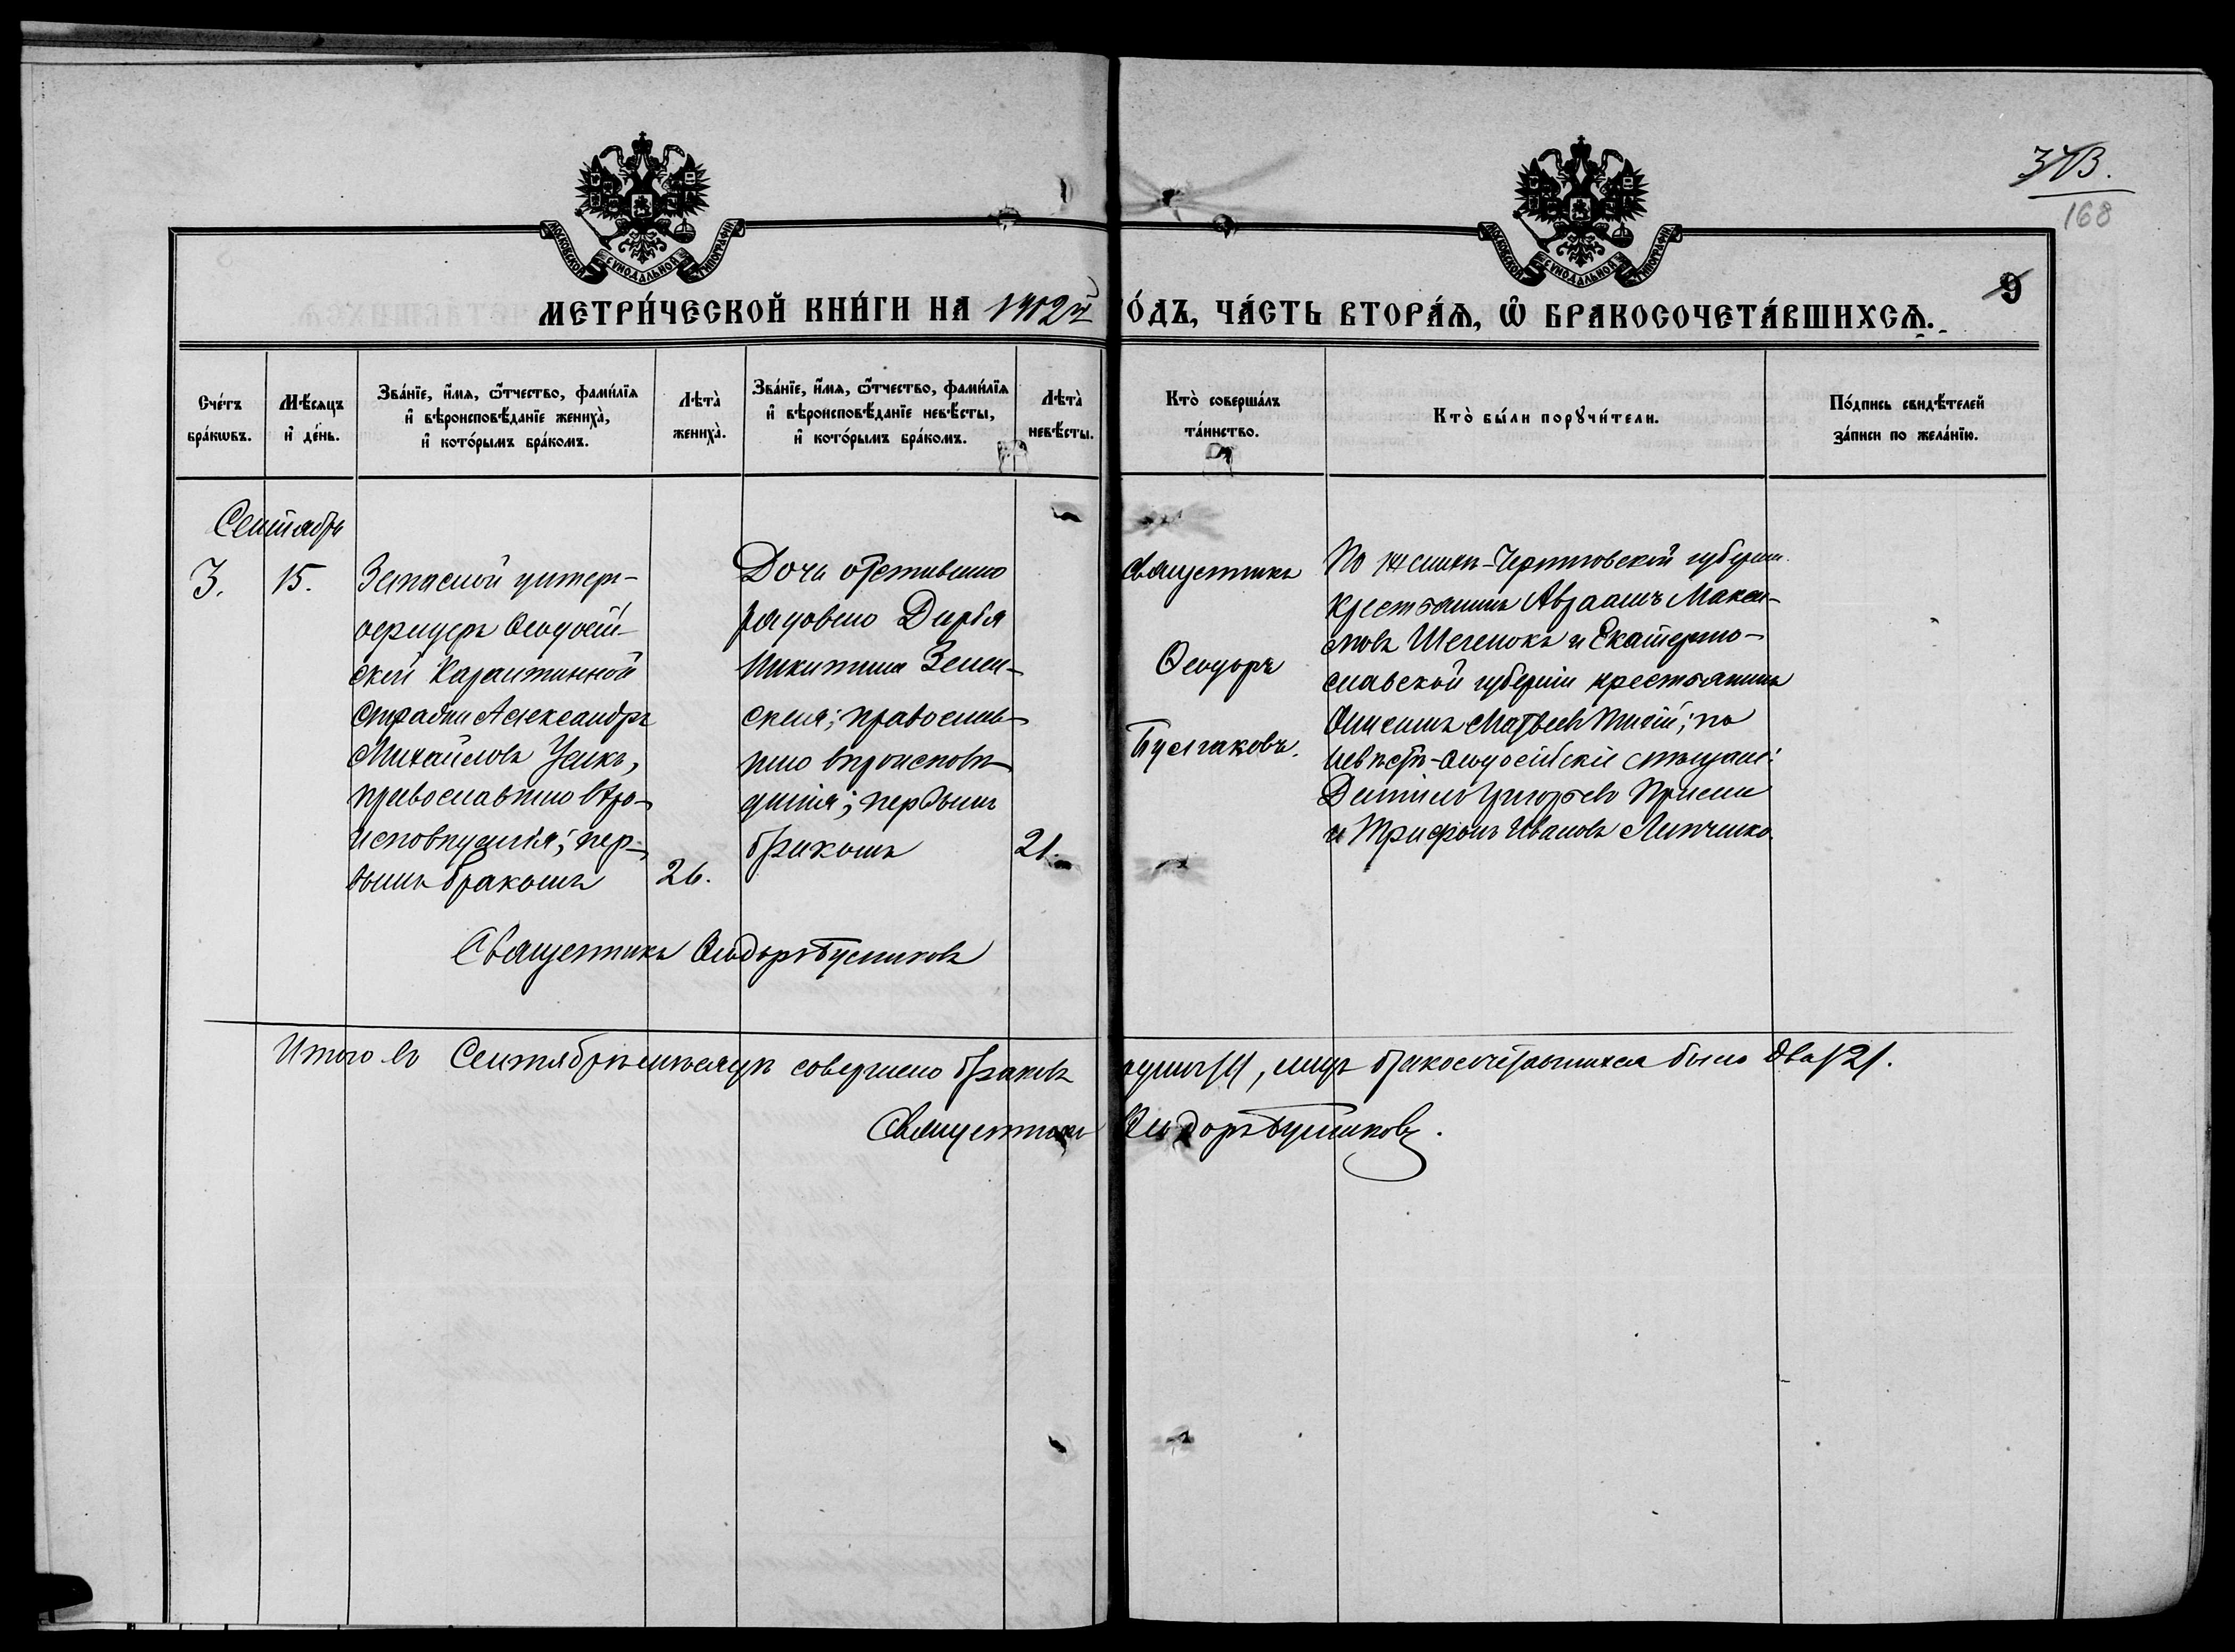 168
9
МЕТРИ́ЧЕСКОЙ КНИ́ГИ НА 1912й ГО́ДЪ, ЧА́СТЬ ВТОРА́Ѧ, Ѡ҆ БРАКОСОЧЕТА́ВШИХСѦ.
МОСКОВСКОЙ СѴНОДАЛЬНОЙ ТИПОГРАФІИ
МОСКОВСКОЙ СѴНОДАЛЬНОЙ ТИПОГРАФІИ
Сче́тъ
бра́кѡвъ.
Мѣ́сяцъ
и҆ де́нь.
Зва́нїе, и҆́мя, ѻ҆́тчество, фами́лїя
и҆ вѣроисповѣ́данїе жениха̀,
и҆ кото́рымъ бра́комъ.
Лѣта̀
жениха̀.
Зва́нїе, и҆́мя, ѻ҆́тчество, фами́лїя
и҆ вѣроисповѣ́данїе невѣ́сты,
и҆ кото́рымъ бра́комъ.
Лѣта̀
невѣ́сты.
Кто̀ соверша́лъ
та́инство.
Кто̀ бы́ли порꙋчи́тели.
По́дпись свидѣ́телей
за́писи по жела́нїю.
Сентябрь
3.
15.
Запасной унтеръ-
офицеръ Ѳеодосій-
ской Карантинной
стражи Александръ
Михайловъ Усикъ,
православнаго вѣро-
исповѣданія; пер-
вымъ бракомъ
26.
Дочь отставного
рядового Дарія
Никитина Зелен-
ская; православ-
наго вѣроисповѣ-
данія; первымъ
бракомъ
21.
Священникъ
Ѳеодоръ
Булгаковъ.
По женихѣ-Черниговской губерн.
крестьянинъ Авраамъ Макси-
мовъ Шеленокъ и Екатерино-
славской губерніи крестьянинъ
Матвеевъ; по
невѣстѣ-Ѳеодосійскіе мѣщане:
Даніилъ Григорьевъ
и Трифонъ Ивановъ Липченко.
Священникъ Ѳеодоръ Булгаковъ
Итого въ Сентябрѣ мѣсяцѣ совершено браковъ одинъ /1/, лицъ бракосочетавшихся было два /2/.
Священникъ Ѳеодоръ Булгаковъ.